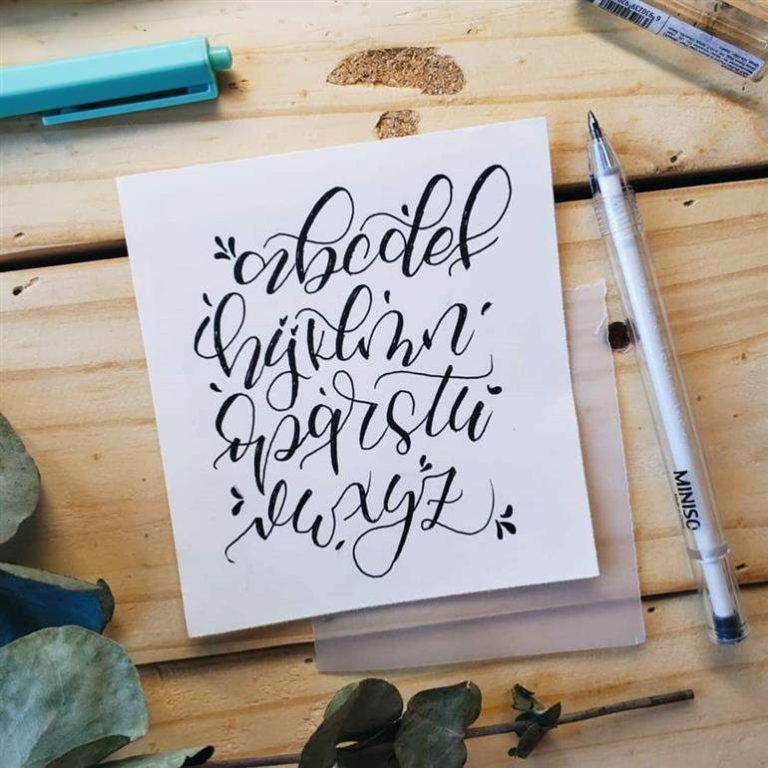 abcdef
hijklmn
opqrstu
vwxyz
MINISO